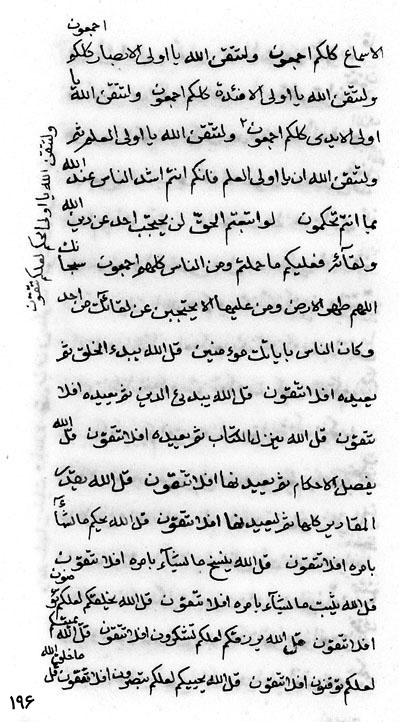 اجمعون
الاسماع كلكم اجمعون ولتتقن الله يا اولى الابصار كلكم
ولتتقن الله يا اولى الافئدة كلكم اجمعون ولتتقن الله يا
اولى الايدى كلكم اجمعون ولتتقن الله يا اولى العلم ثم
ولتتقن الله ان يا اولى العلم فانكم انتم اشد الناس عند الله
بما انتم تحكمون لو اتبعتم الحق لن يحتجب احد عن دين الله
ولقآئه فعليكم ما حملتم ومن الناس كلهم اجمعون سبحانك
اللهم طهر الارض ومن عليها الا يحتجبن عن لقائك من احد
وكان الناس باياتك موءمنين قل الله يبدء الخلق ثم
يعيده افلا تتقون قل الله يبدئ الدين ثم يعيده افلا
تتقون قل الله ينزل الكتاب ثم يعيده افلا تتقون قل الله
يفصل الاحكام ثم يعيدنها افلا تتقون قل الله يقدر
المقادير كلها ثم ليعيدنها افلا تتقون قل الله يحكم ما يشآء
بامره افلا تتقون قل الله ينسخ ما يشآء بامره افلا تتقون
قل الله يثبت ما يشآء بامره افلا تتقون قل الله يخلقكم لعلكم
افلا تتقون قل الله يرزقكم لعلكم تشكرون افلا تتقون قل الله
لعلكم توقنون افلا تتقون قل الله يحييكم لعلكم تبصرون افلا تتقون قل
ولتتقن الله يا اولى الحكم لعلكم تتقون
۱۹۶